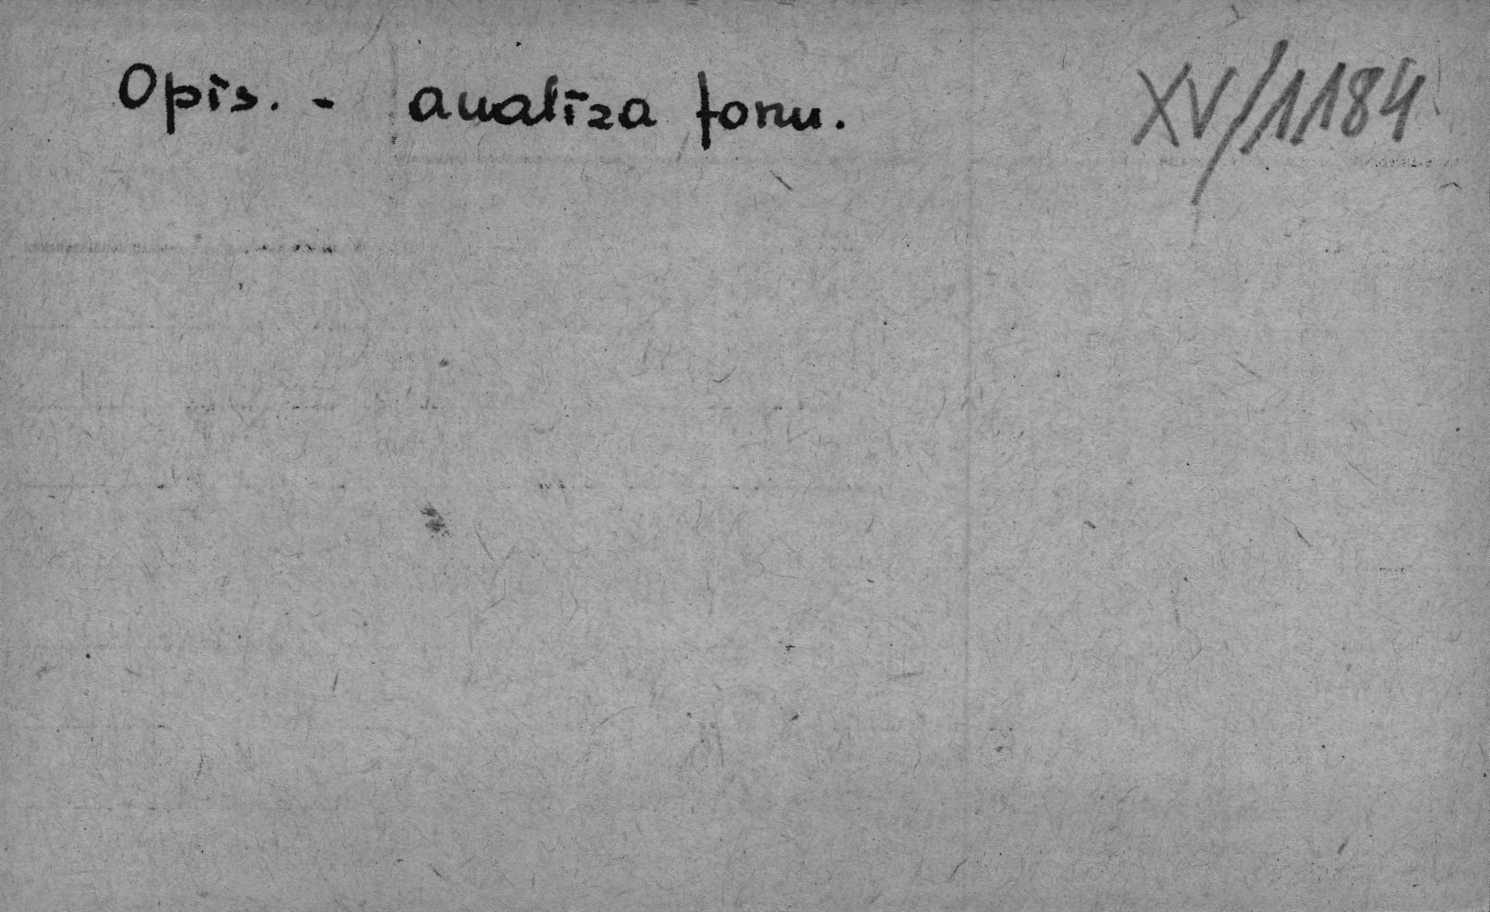 Opis. - analiza fonu.
XV/1184